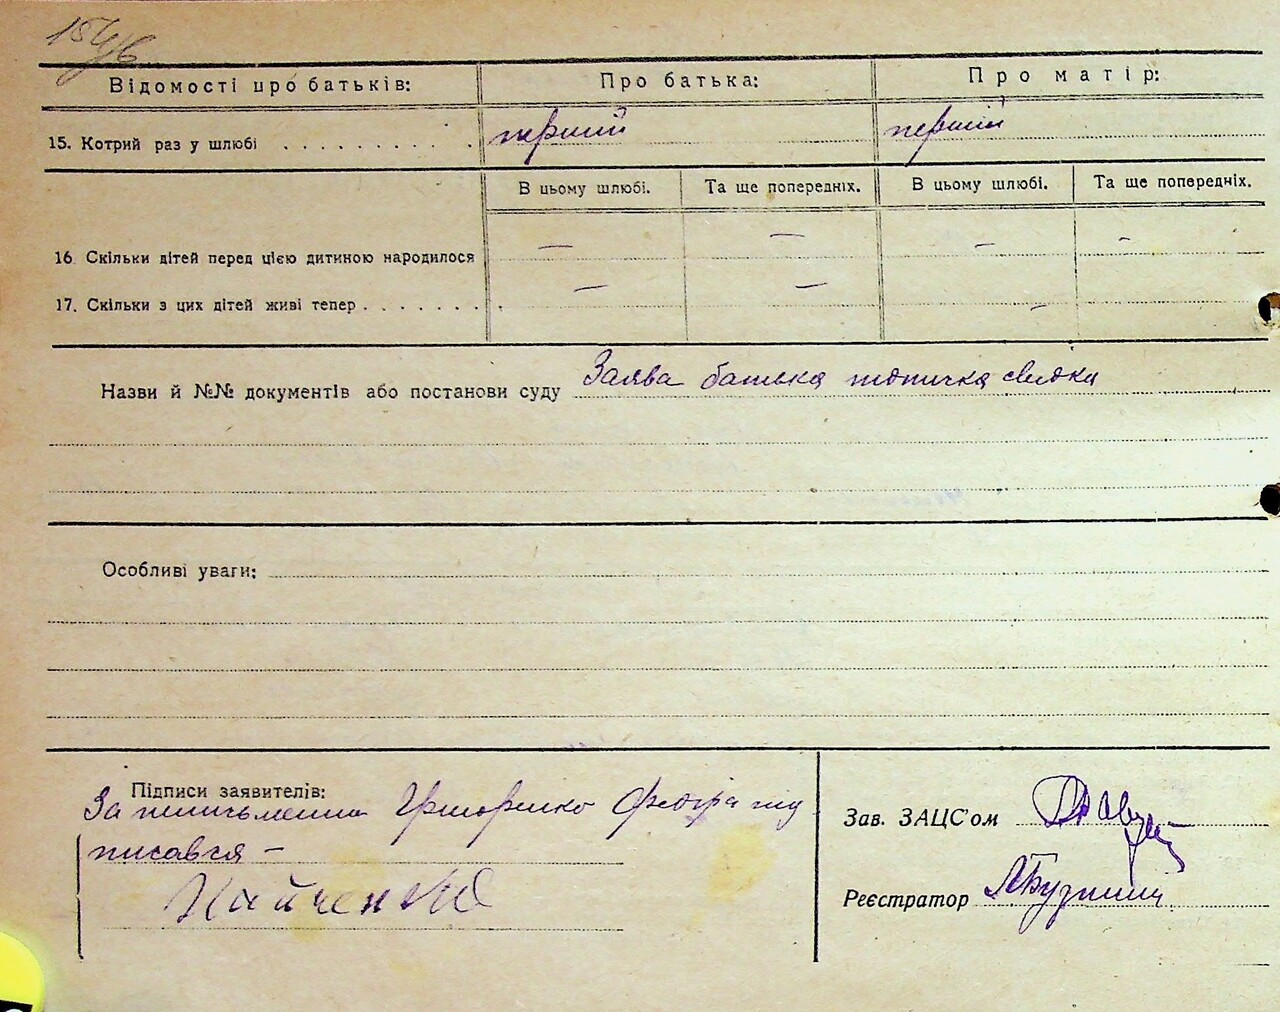 154/6
Відомості про батьків: Про батька: Про матір:
15. Котрий раз у шлюбі . . . . . . . . . . . перший перший
В цьому шлюбі. Та ще попередніх. В цьому шлюбі. Та ще попередніх.
16 Скільки дітей перед цією дитиною народилося — — — —
17. Скільки з цих дітей живі тепер . . . . . . . . — — —
Назви й №№ документів або постанови суду Заява батька
Особливі уваги:
Підписи заявителів:
За
писався —
Найченко
Зав. ЗАЦС'ом
Реєстратор